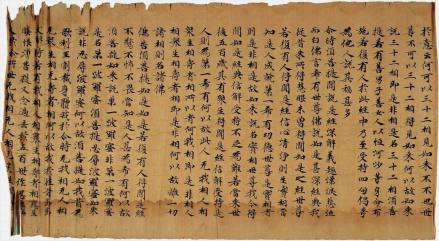 於意云何可以三十二相見如來不不也世
尊不可以三十二相得見如來何以故如來
說三十二相即是非相是名三十二相須菩
提若有善男子善女人以恒河沙等身命布
施若復有人於此經中乃至受持四句偈等
為他人說其福甚多
尒時須菩提聞說是經深解義趣涕淚悲泣
而白佛言希有世尊佛說如是甚深經典我
從昔來所得慧眼未曾得聞如是之經世尊
若復有人得聞是經信心清淨則生實相當
知是人成就第一希有功德世尊是實相者
則是非相是故如來說名實相世尊我今得
聞如是經典信解受持不足為難若當來世
後五百歲其有衆生得聞是經信解受持是
人則為第一希有何以故此人无我相人相
衆生相壽者相所以者何我相即是非相人
相衆生相壽者相即是非相何以故離一切
諸相則名諸佛
佛告須菩提如是如是若復有人得聞是經
不驚不怖不畏當知是人甚為希有何以故
須菩提如來說第一波羅蜜非第一波羅蜜
是名第一波羅蜜須菩提忍辱波羅蜜如來
說非忍辱波羅蜜何以故須菩提如我昔為
歌利王割截身體我於尒時无我相无人相
无衆生相无壽者相何以故我於往昔節節
支解時若有我相人相衆生相壽者相應生
瞋恨須菩提又念過去於五百世作忍辱仙
人於尒所世无我相无人相